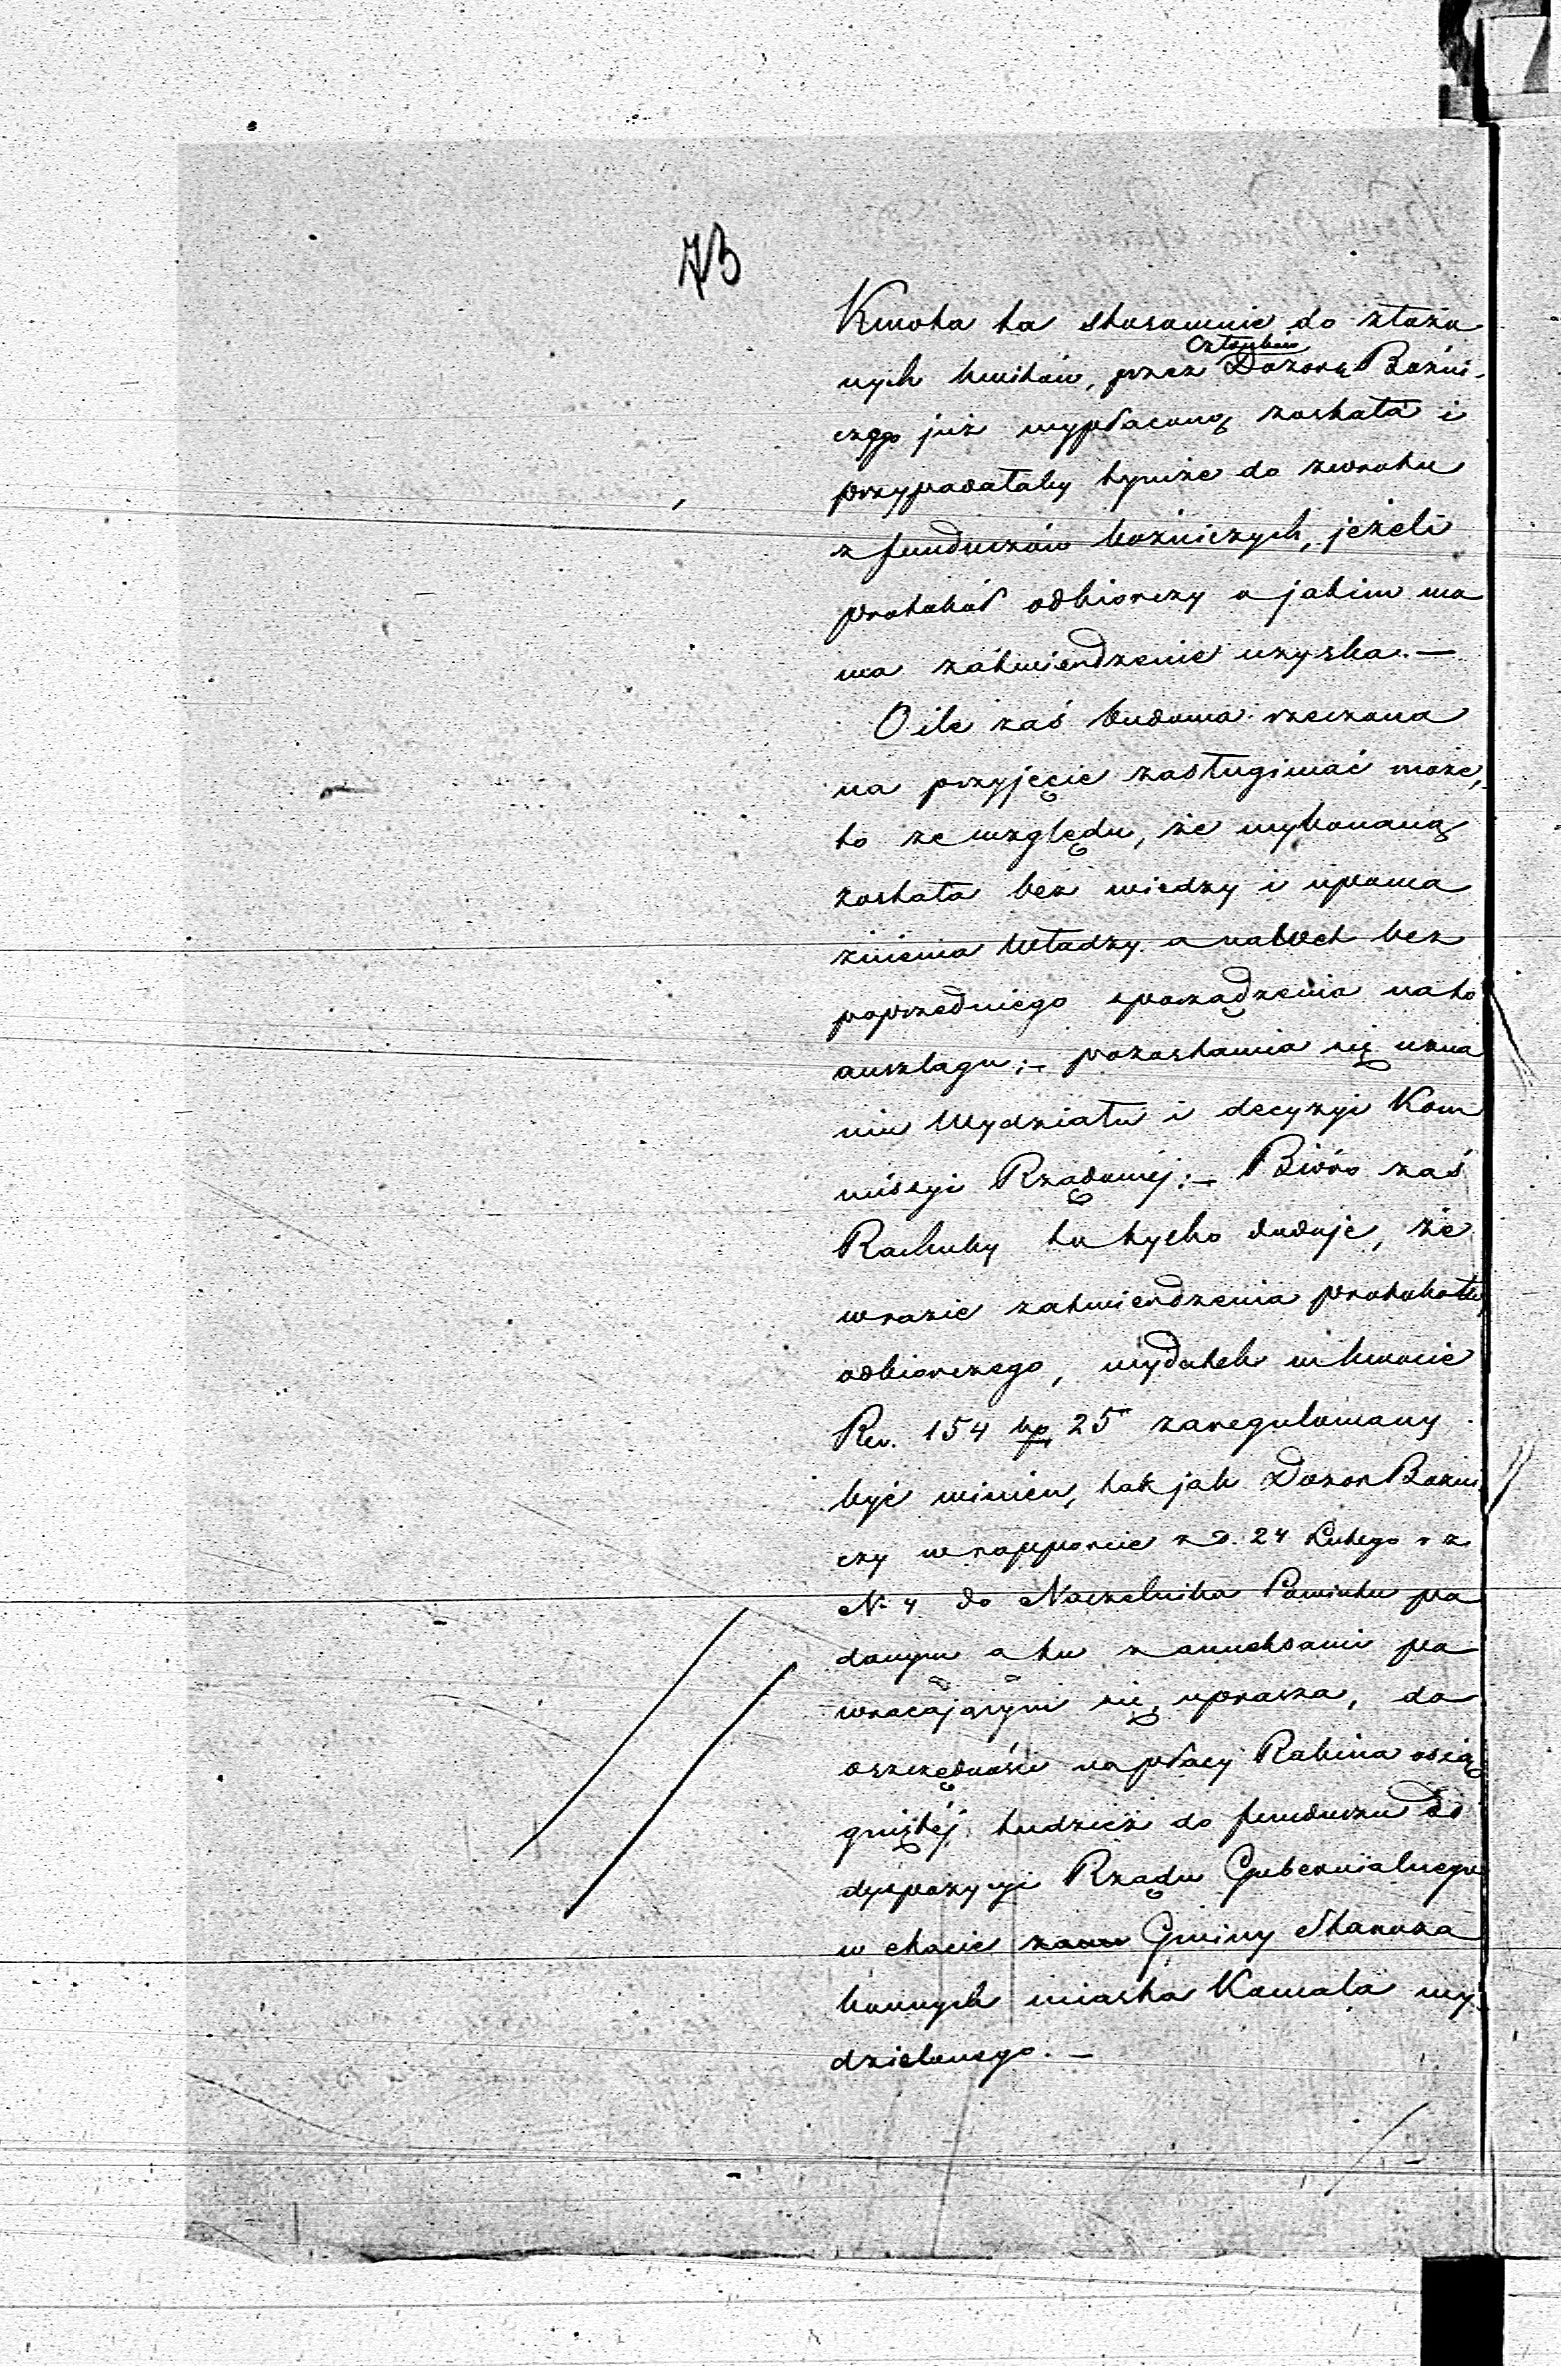 73
Kwota ta stosownie do złożo
nych kwitów, przez Członków Dozoru Bóżni-
czego już wypłaconą została i
przypadałaby tymże do zwrotu
z funduszów bóżniczych, jeżeli
protokół odbiorczy o jakim mo
wa zatwierdzenie uzyska. —
O ile zaś budowa rzeczona
na przyjęcie zasługiwać może,
to ze względu, że wykonaną
została bez wiedzy i upowa
żnienia Władzy a nadto bez
poprzedniego sporządzenia na to
anszlagu; — pozostawia się uzna
niu Wydziału i decyzyi Kom
missyi Rządowéj; — Bióro zaś
Rachuby tu tylko dodaje, że
w razie zatwierdzenia protokołu
odbiorczego, wydatek w kwocie
Rsr. 154 kp 25 zaregulowany
być winien, tak jak Dozor Bożni
czy w rapporcie z d. 24 Lutego r z
N. 4 do Naczelnika Powiatu po
danym a tu z annexami po
wracającym się, uprasza, do
oszczędności na płacy Rabina osią
gniętéj tudzież do funduszu do
dyspozycyi Rządu Gubernialnego
w etacie Gminy Staroza
konnych miasta Kowala wy
dzielonego. —